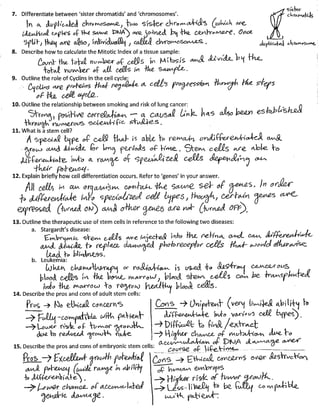 7. Differentiate between 'sister chromatids' and 'chromosomes'.
sister
chromatids
In a duplicated chromosome, two sister chromatids (which are
identical copies of the same DNA) are joined by the centromere. Once
split, they are also, individually, called chromosomes.
duplicated chromosome
8. Describe how to calculate the Mitotic Index of a tissue sample:
Count the total number of cells in Mitosis and divide by the
total number of all cells in the sample.
9. Outline the role of Cyclins in the cell cycle:
Cyclins are proteins that regulate a cell's progression through the steps
of the cell cycle.
10. Outline the relationship between smoking and risk of lung cancer:
Strong, positive correlation - a causal link has also been established
through numerous scientific studies.
11. What is a stem cell?
A special type of cell that is able to remain undifferentiated and
grow and divide for long periods of time. Stem cells are able to
differentiate into a range of specialized cells depending on
their potency.
12. Explain briefly how cell differentiation occurs. Refer to 'genes' in your answer.
All cells in an organism contain the same set of genes. In order
to differentiate into specialized cell types, though, certain genes are
expressed (turned on) and other genes are not (turned off).
13. Outline the therapeutic use of stem cells in reference to the following two diseases:
a. Stargardt's disease:
Embryonic stem cells are injected into the retina and can differentiate
and divide to replace damaged photoreceptor cells that would otherwise
lead to blindness.
b. Leukemia:
When chemotherapy or radiation is used to destroy cancerous
blood cells in the bone marrow, blood stem cells can be transplanted
into the marrow to regrow healthy blood cells.
14. Describe the pros and cons of adult stem cells:
Pros → No ethical concerns
→ Fully-compatible with patient
→ Lower risk of tumor growth
due to reduced growth rate
Cons → Unipotent (very limited ability to
differentiate into various cell types).
→ Difficult to find/extract
→ Higher chance of mutation due to
accumulation of DNA damage over
course of lifetime
15. Describe the pros and cons of embryonic stem cells:
Pros → Excellent growth potential
and potency (wide range in ability
to differentiate)
→ Lower chance of accumulated
genetic damage.
Cons → Ethical concerns over destruction
of human embryos
→ Higher risk of tumor growth.
→ Less likely to be fully compatible
with patient.